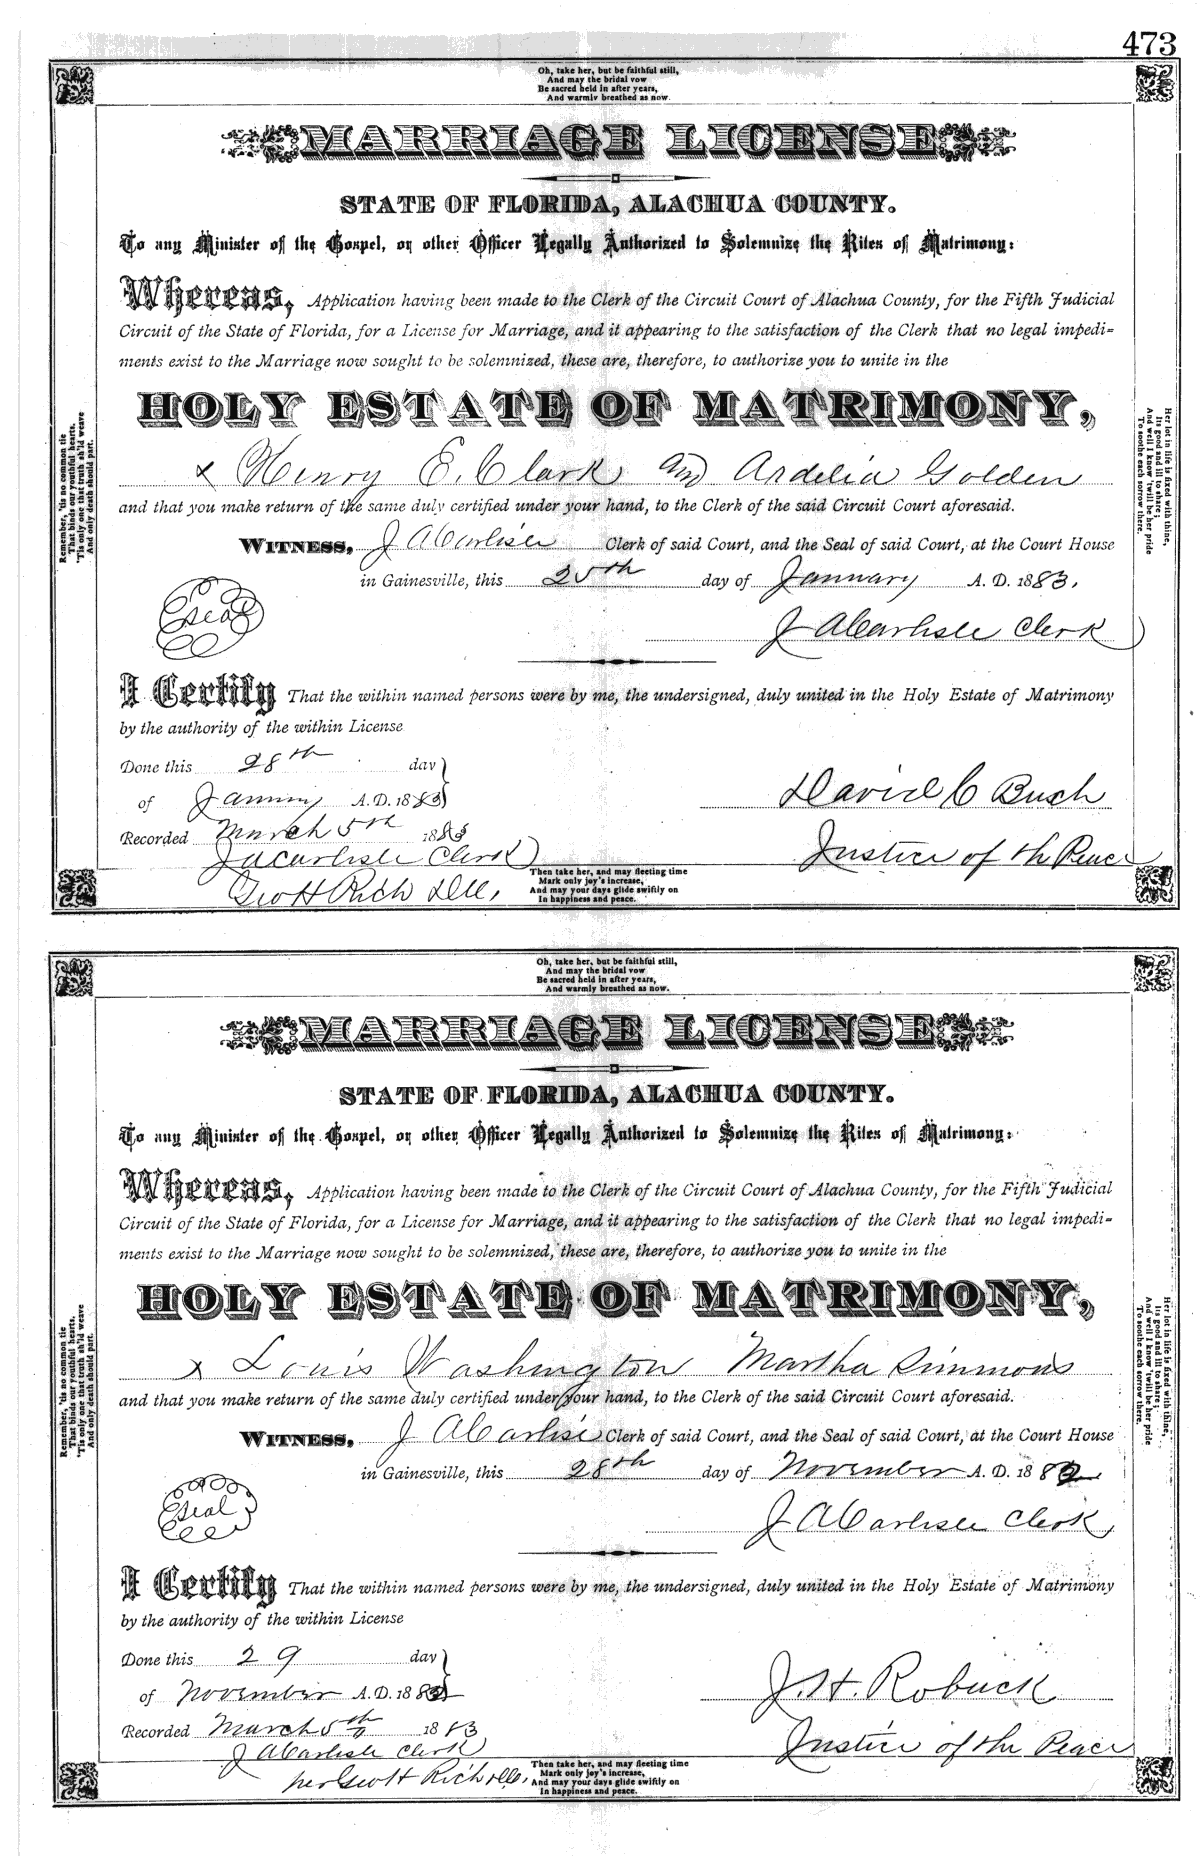 473
Oh, take her, but be faithful still,
And may the bridal vow
Be sacred held in after years,
And warmly breathed as now.
MARRIAGE LICENSE
STATE OF FLORIDA, ALACHUA COUNTY.
To any Minister of the Gospel, or other Officer Legally Authorized to Solemnize the Rites of Matrimony:
Whereas, Application having been made to the Clerk of the Circuit Court of Alachua County, for the Fifth Judicial
Circuit of the State of Florida, for a License for Marriage, and it appearing to the satisfaction of the Clerk that no legal impedi-
ments exist to the Marriage now sought to be solemnized, these are, therefore, to authorize you to unite in the
HOLY ESTATE OF MATRIMONY,
x Henry E. Clark and Ardelia Golden
and that you make return of the same duly certified under your hand, to the Clerk of the said Circuit Court aforesaid.
WITNESS, J A Carlisle Clerk of said Court, and the Seal of said Court, at the Court House
in Gainesville, this 25th day of January A. D. 1883.
Seal
J A Carlisle Clerk
I Certify That the within named persons were by me, the undersigned, duly united in the Holy Estate of Matrimony
by the authority of the within License
Done this 28th day
of January A. D. 1883
David C Bush
Recorded March 5th 1883
J A Carlisle Clerk
Justice of the Peace
Geo H Rich
Remember, 'tis no common tie
That binds our youthful hearts,
'Tis only one that truth sh'ld weave
And only death should part.
Her lot in life is fixed with thine,
Its good and ill to share;
And well I know 'twill be her pride
To soothe each sorrow there.
Then take her, and may fleeting time
Mark only joy's increase,
And may your days glide swiftly on
In happiness and peace.
Oh, take her, but be faithful still,
And may the bridal vow
Be sacred held in after years,
And warmly breathed as now.
MARRIAGE LICENSE
STATE OF FLORIDA, ALACHUA COUNTY.
To any Minister of the Gospel, or other Officer Legally Authorized to Solemnize the Rites of Matrimony:
Whereas, Application having been made to the Clerk of the Circuit Court of Alachua County, for the Fifth Judicial
Circuit of the State of Florida, for a License for Marriage, and it appearing to the satisfaction of the Clerk that no legal impedi-
ments exist to the Marriage now sought to be solemnized, these are, therefore, to authorize you to unite in the
HOLY ESTATE OF MATRIMONY,
x Louis Washington Martha Simmons
and that you make return of the same duly certified under your hand, to the Clerk of the said Circuit Court aforesaid.
WITNESS, J A Carlisle Clerk of said Court, and the Seal of said Court, at the Court House
in Gainesville, this 28th day of November A. D. 1882
Seal
J A Carlisle Clerk
I Certify That the within named persons were by me, the undersigned, duly united in the Holy Estate of Matrimony
by the authority of the within License
Done this 29 day
of November A. D. 1882
J. H. Robuck
Recorded March 5th 1883
J A Carlisle Clerk
Justice of the Peace
per Geo H Rich
Remember, 'tis no common tie
That binds our youthful hearts,
'Tis only one that truth sh'ld weave
And only death should part.
Her lot in life is fixed with thine,
Its good and ill to share;
And well I know 'twill be her pride
To soothe each sorrow there.
Then take her, and may fleeting time
Mark only joy's increase,
And may your days glide swiftly on
In happiness and peace.